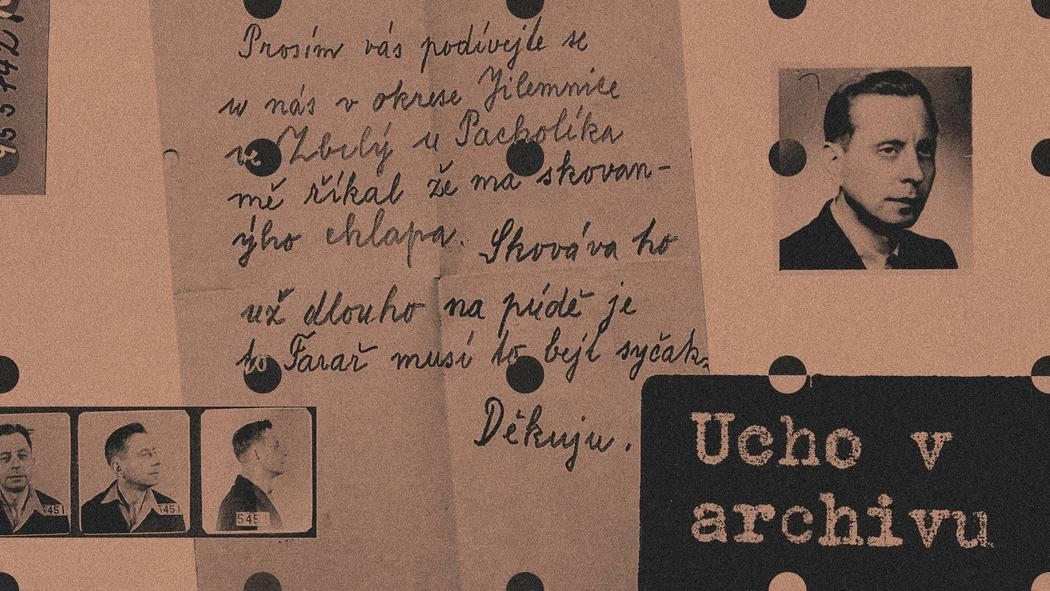 Prosím vás podívejte se
u nás v okrese Jilemnice
ve Zbylý u Pacholíka
mě říkal že ma skovan-
ýho chlapa. Skováva ho
už dlouho na púdě je
to Farař musí to bejt syčák.
Děkuju.
5451
5451
545
Ucho v
archivu